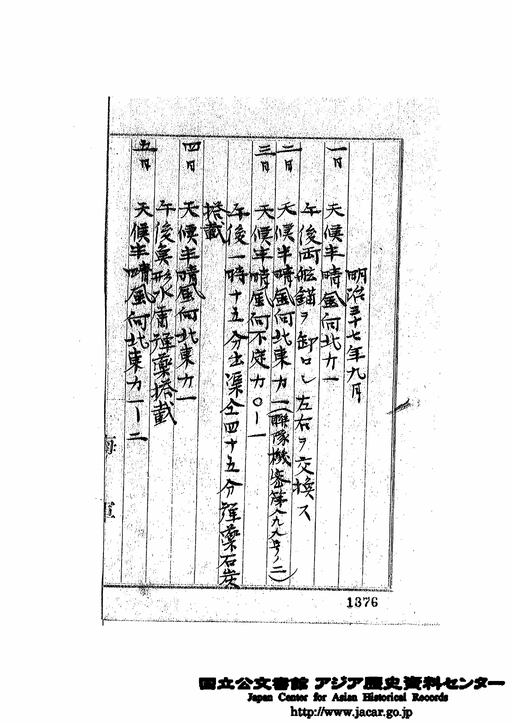 明治三十七年九月
一日 天候半晴風向北力一
午後両舷錨ヲ卸ロシ左右ヲ交換ス
二日 天候半晴風向北東力一(聯隊機密第八九九号ノ二)
三日 天候半晴風向不定力〇ー一
午後一時十五分出渠仝四十五分弾薬石炭
搭載
四日 天候半晴風向北東力一
午後魚形水雷弾薬搭載
五日 天候半晴風向北東力一ー二
海軍
1376
国立公文書館 アジア歴史資料センター
Japan Center for Asian Historical Records
http://www.jacar.go.jp